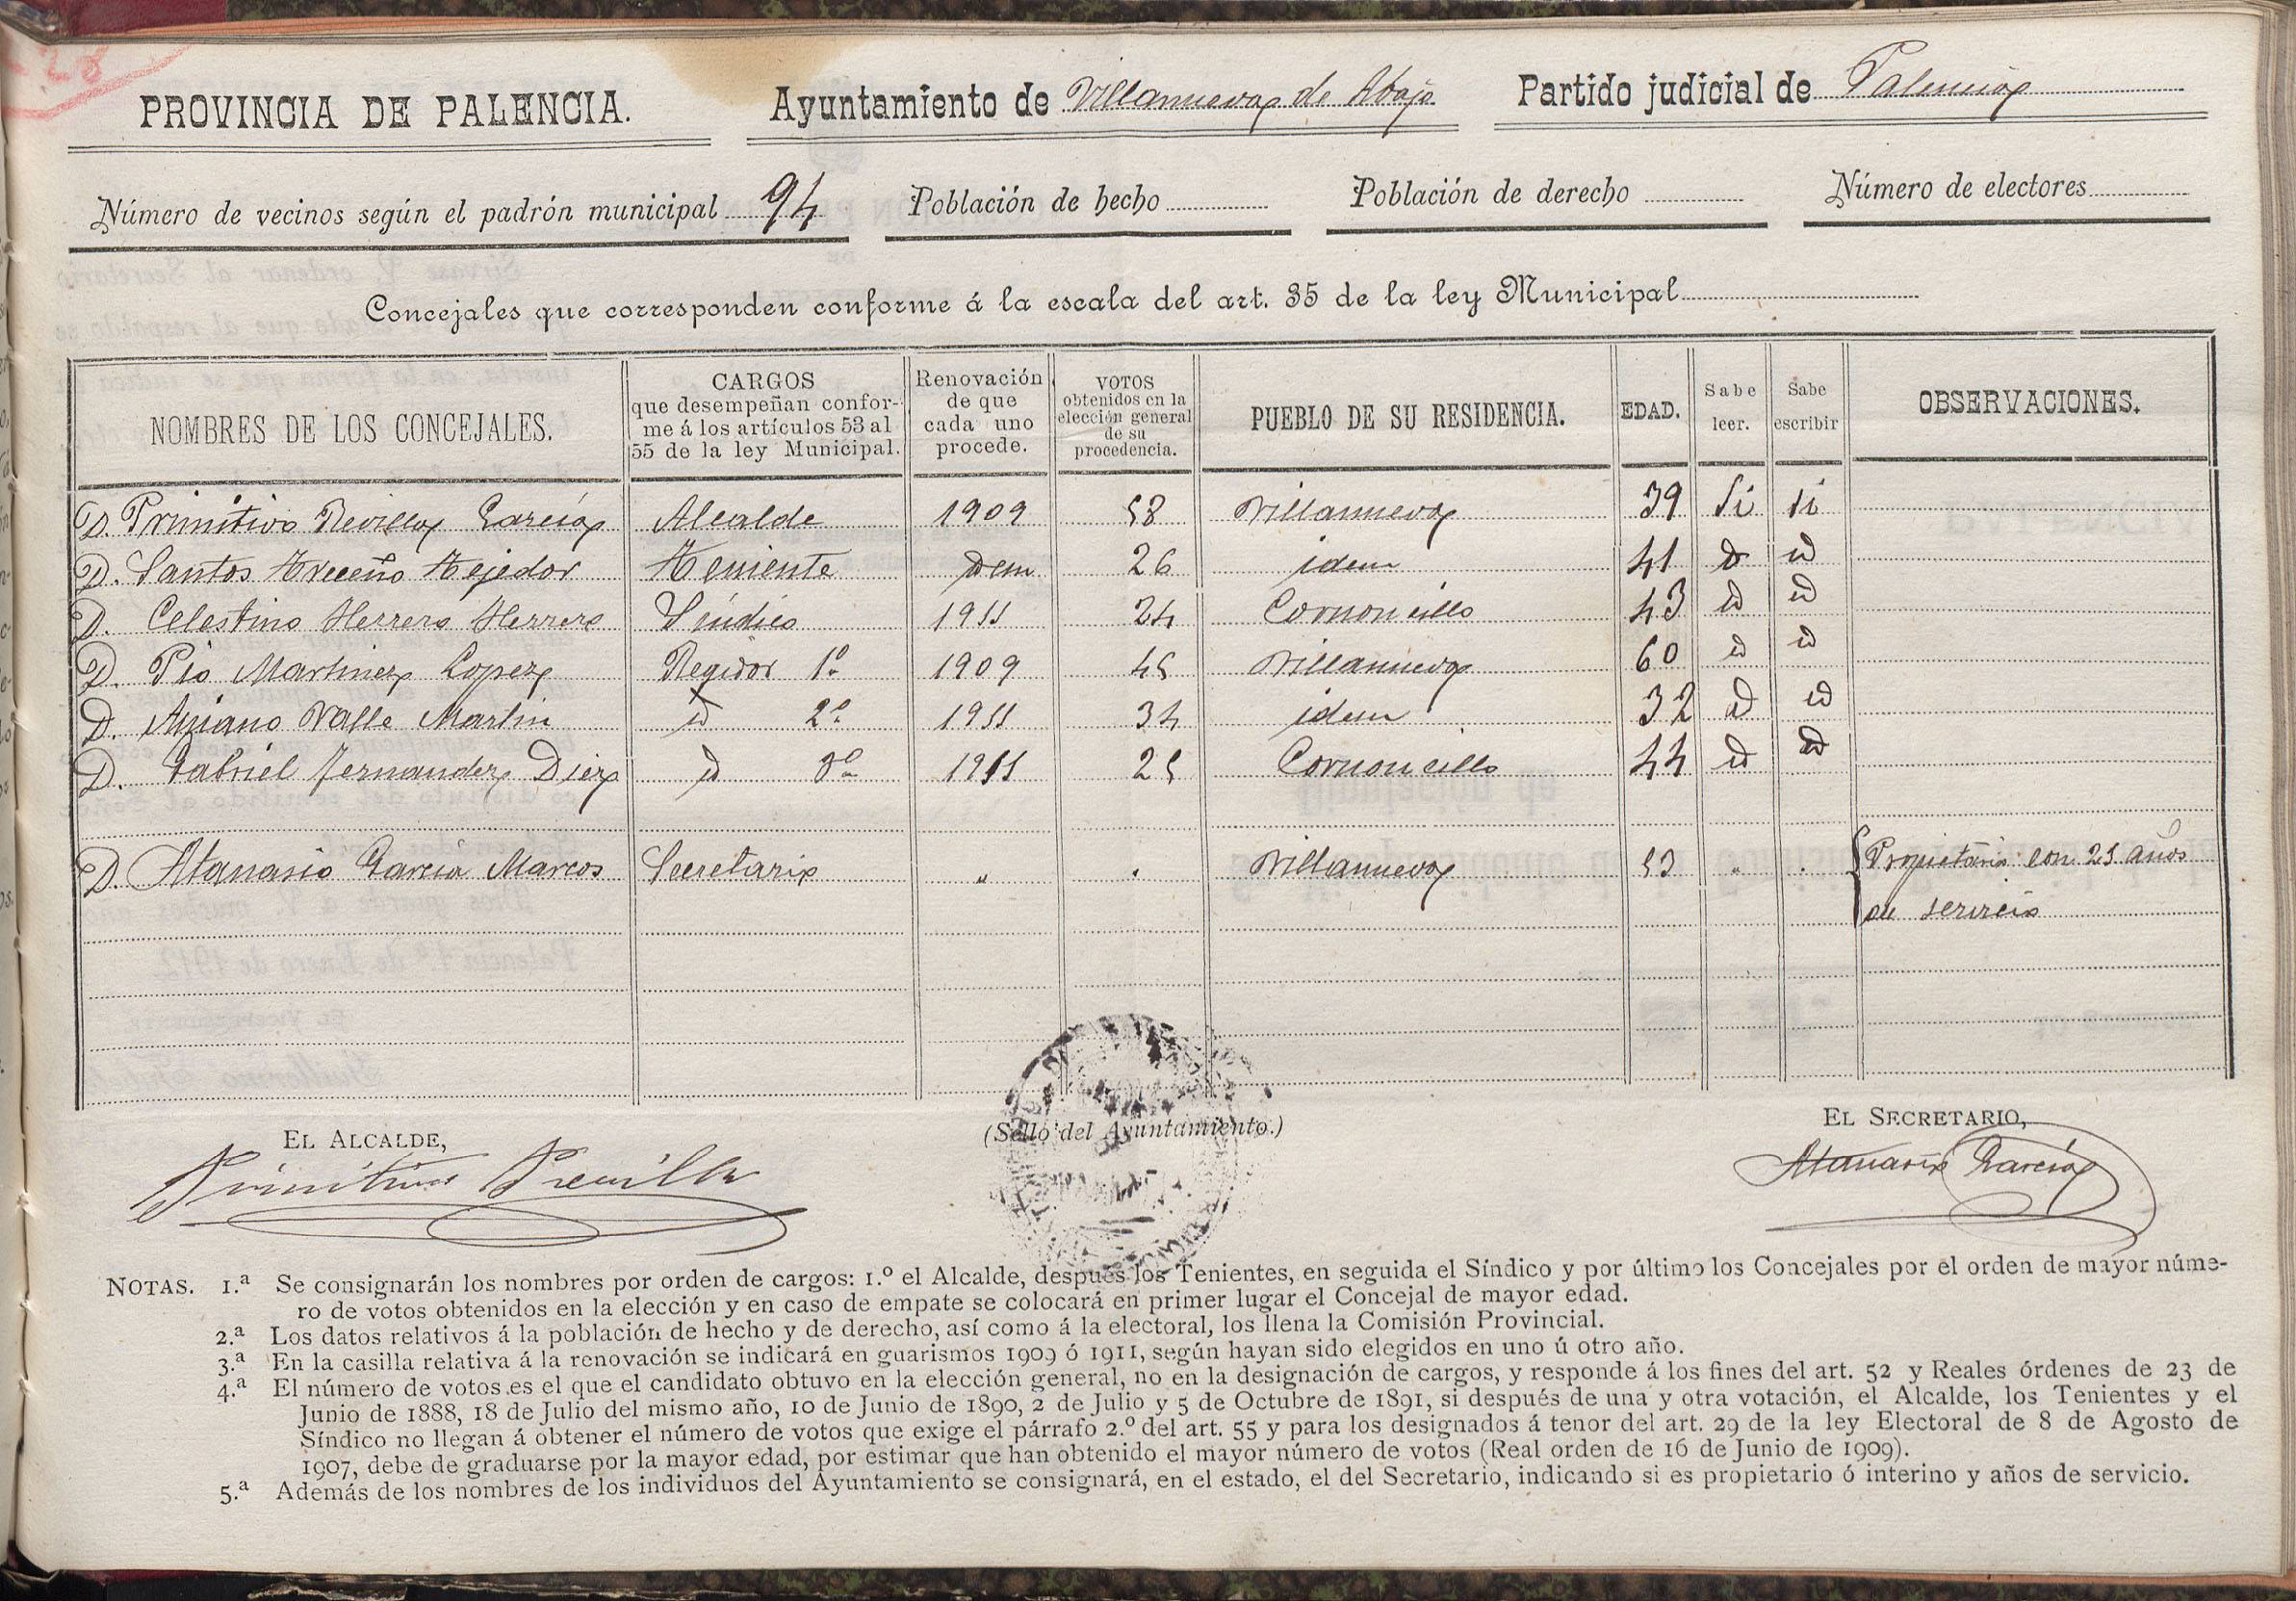 28
PROVINCIA DE PALENCIA. Ayuntamiento de Villanueva de Abajo Partido judicial de Palencia
Número de vecinos según el padrón municipal 94 Población de hecho Población de derecho Número de electores
Concejales que corresponden conforme á la escala del art. 35 de la ley Municipal
NOMBRES DE LOS CONCEJALES. CARGOS que desempeñan conforme á los artículos 53 al 55 de la ley Municipal. Renovación de que cada uno procede. VOTOS obtenidos en la elección general de su procedencia. PUEBLO DE SU RESIDENCIA. EDAD. Sabe leer. Sabe escribir OBSERVACIONES.
D. Primitivo Revilla García Alcalde 1909 58 Villanueva 39 Si si
D. Santos Treceño Tejedor Teniente Idem 26 idem 41 id id
D. Celestino Herrero Herrero Síndico 1911 24 Cornoncillo 43 id id
D. Pio Martinez Lopez Regidor 1º 1909 45 Villanueva 60 id id
D. Aniano Valle Martin id 2º 1911 34 idem 32 id id
D. Gabriel Fernandez Diez id 3º 1911 25 Cornoncillo 44 id id
D. Atanasio García Marcos Secretario " " Villanueva 53 " " Propietario con 25 años
de servicio
EL ALCALDE, (Sello del Ayuntamiento.) EL SECRETARIO,
Primitivo Revilla Atanasio García
NOTAS. 1.ª Se consignarán los nombres por orden de cargos: 1.º el Alcalde, despues los Tenientes, en seguida el Síndico y por último los Concejales por el orden de mayor núme-
ro de votos obtenidos en la elección y en caso de empate se colocará en primer lugar el Concejal de mayor edad.
2.ª Los datos relativos á la población de hecho y de derecho, así como á la electoral, los llena la Comisión Provincial.
3.ª En la casilla relativa á la renovación se indicará en guarismos 1909 ó 1911, según hayan sido elegidos en uno ú otro año.
4.ª El número de votos es el que el candidato obtuvo en la elección general, no en la designación de cargos, y responde á los fines del art. 52 y Reales órdenes de 23 de
Junio de 1888, 18 de Julio del mismo año, 10 de Junio de 1890, 2 de Julio y 5 de Octubre de 1891, si después de una y otra votación, el Alcalde, los Tenientes y el
Síndico no llegan á obtener el número de votos que exige el párrafo 2.º del art. 55 y para los designados á tenor del art. 29 de la ley Electoral de 8 de Agosto de
1907, debe de graduarse por la mayor edad, por estimar que han obtenido el mayor número de votos (Real orden de 16 de Junio de 1909).
5.ª Además de los nombres de los individuos del Ayuntamiento se consignará, en el estado, el del Secretario, indicando si es propietario ó interino y años de servicio.